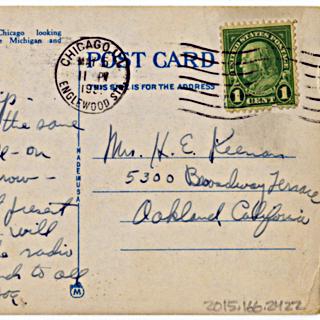 Chicago looking
e Michigan and
POST CARD
THIS SIDE IS FOR THE ADDRESS
CHICAGO, ILL.
11 PM
ENGLEWOOD STA.
UNITED STATES POSTAGE
1 CENT 1
MADE IN U.S.A.
the same
e-on
now -
present
will
e radio
d to all
Mrs. H. E. Keenan
5300 Broadway Terrace
Oakland, California
M
2015.166.2422